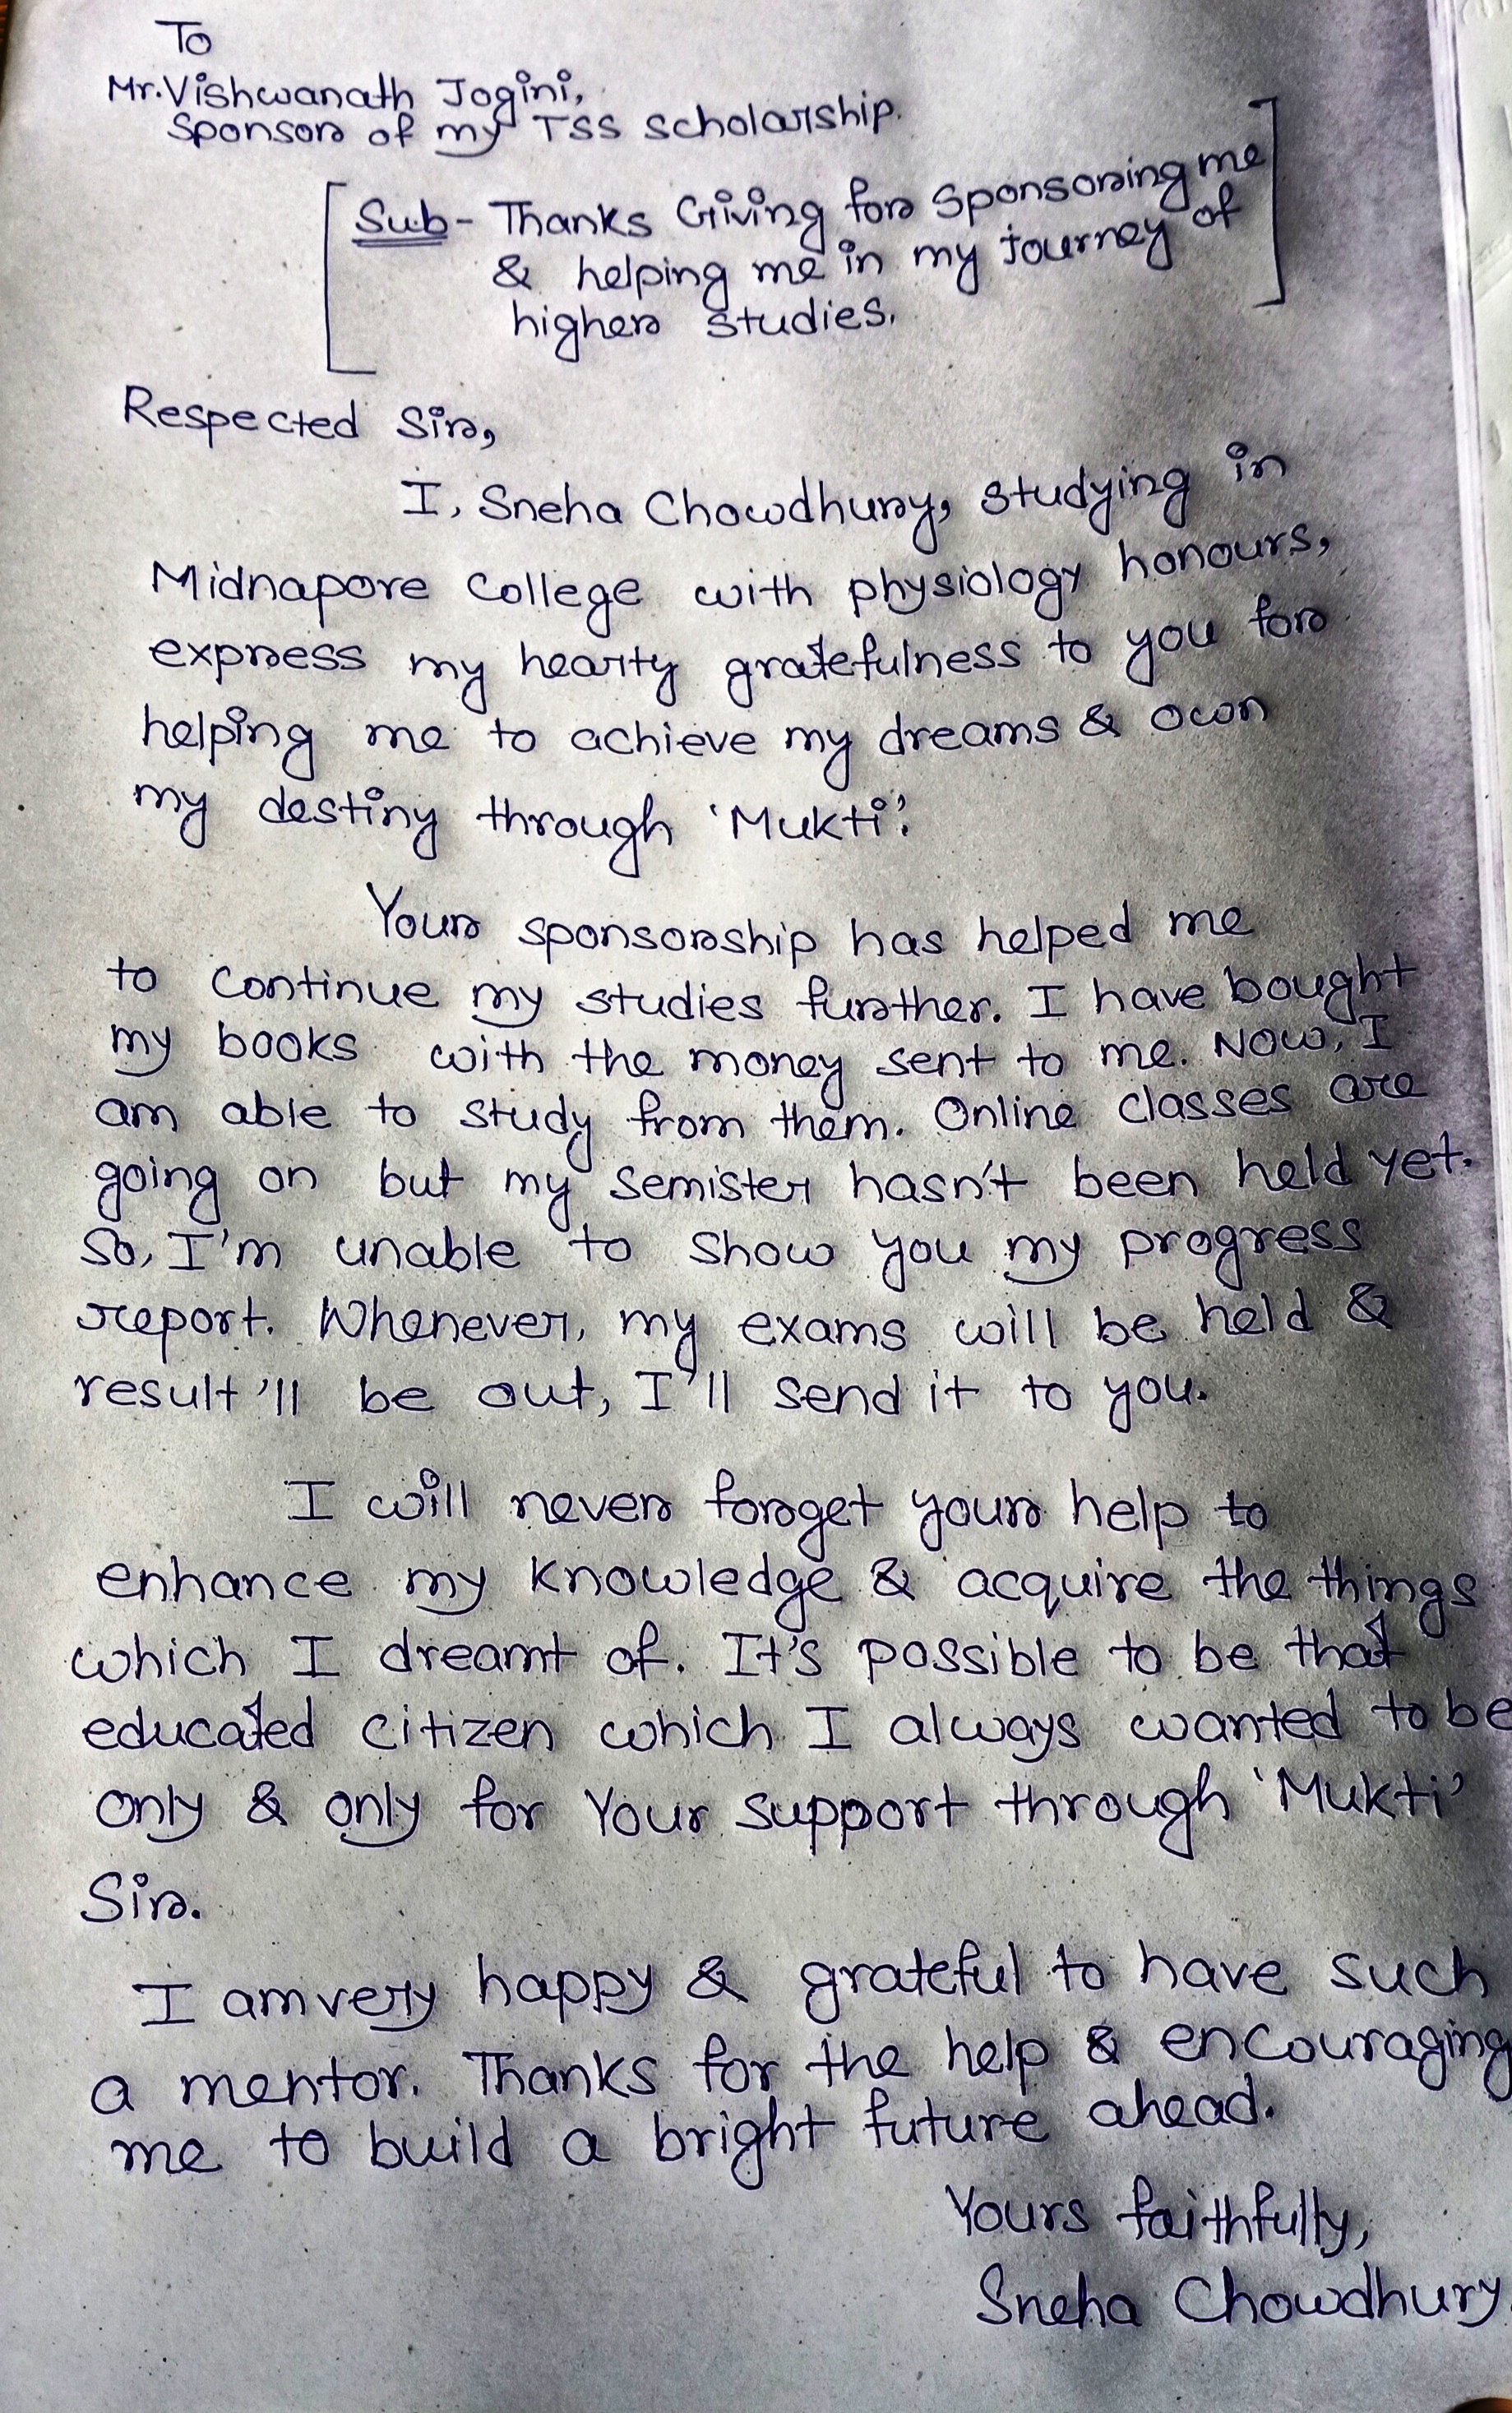 To
Mr. Vishwanath Jogini,
Sponsor of my TSS scholarship.
[Sub- Thanks Giving for sponsoring me
& helping me in my journey of
higher studies.]
Respected Sir,
I, Sneha Chowdhury, studying in
Midnapore College with physiology honours,
express my hearty gratefulness to you for
helping me to achieve my dreams & own
my destiny through 'Mukti'.
Your sponsorship has helped me
to continue my studies further. I have bought
my books with the money sent to me. Now, I
am able to study from them. Online classes are
going on but my semister hasn't been held yet.
So, I'm unable to show you my progress
report. Whenever, my exams will be held &
result'll be out, I'll send it to you.
I will never forget your help to
enhance my knowledge & acquire the things
which I dreamt of. It's possible to be that
educated citizen which I always wanted to be
only & only for Your support through 'Mukti'
Sir.
I am very happy & grateful to have such
a mentor. Thanks for the help & encouraging
me to build a bright future ahead.
Yours faithfully,
Sneha Chowdhury.